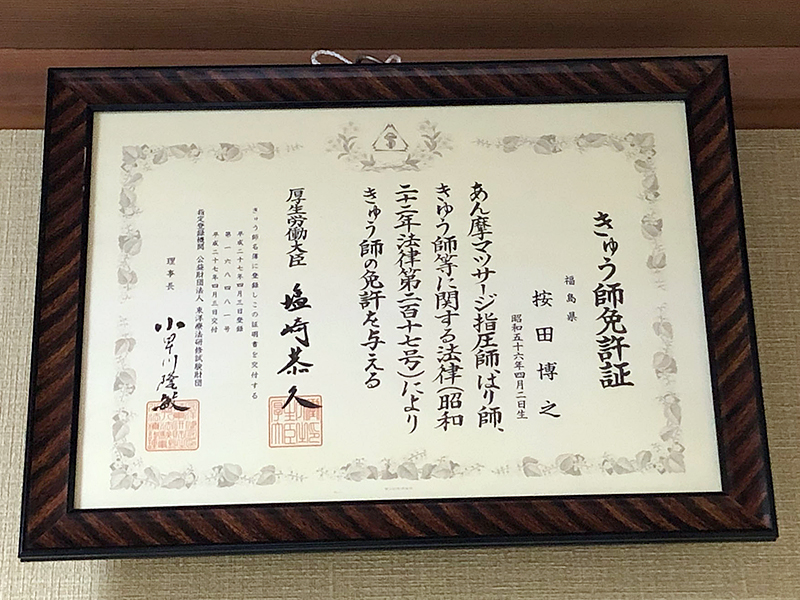 きゅう師免許証
福島県
按田博之
昭和五十六年四月二日生
あん摩マツサージ指圧師、はり師、
きゆう師等に関する法律(昭和
二十二年法律第二百十七号)により
きゅう師の免許を与える
厚生労働大臣 塩崎恭久
きゅう師名簿に登録しこの証明書を交付する
平成二十七年四月三日登録
第一六八四八一号
平成二十七年四月三日交付
指定登録機関 公益財団法人 東洋療法研修試験財団
理事長 小早川隆敏